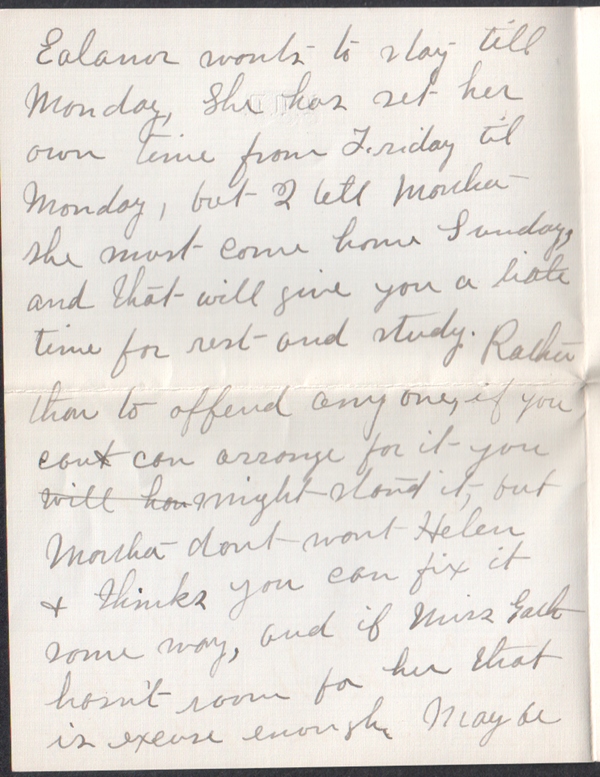 Ealanor wants to stay till
Monday, She has set her
own time from Friday til
Monday, but I tell Martha
she must come home Sunday,
and that will give you a little
time for rest and study. Rather
than to offend any one, if you
can't can arrange for it you
will hav might stand it, but
Martha dont want Helen
& thinks you can fix it
some way, and if Miss
hasn't room for her that
is excuse enough, May be